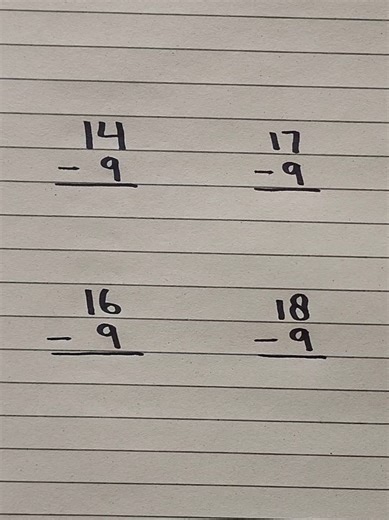 14 17
- 9 - 9
16 18
- 9 - 9